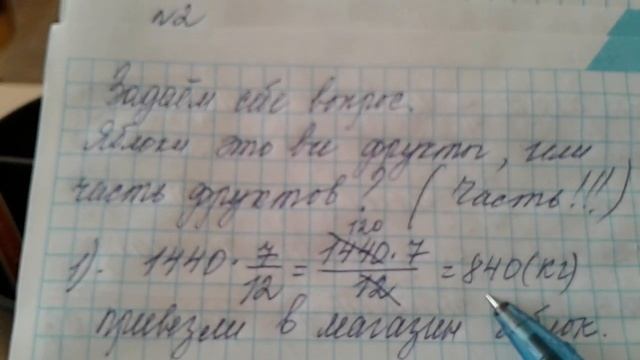 №2
Задаём себе вопрос.
Яблоки это все фрукты, или
часть фруктов? (Часть!!!)
1). 1440 · 7/12 = 1440 · 7/12 = 840 (кг)
120
привезли в магазин яблок.